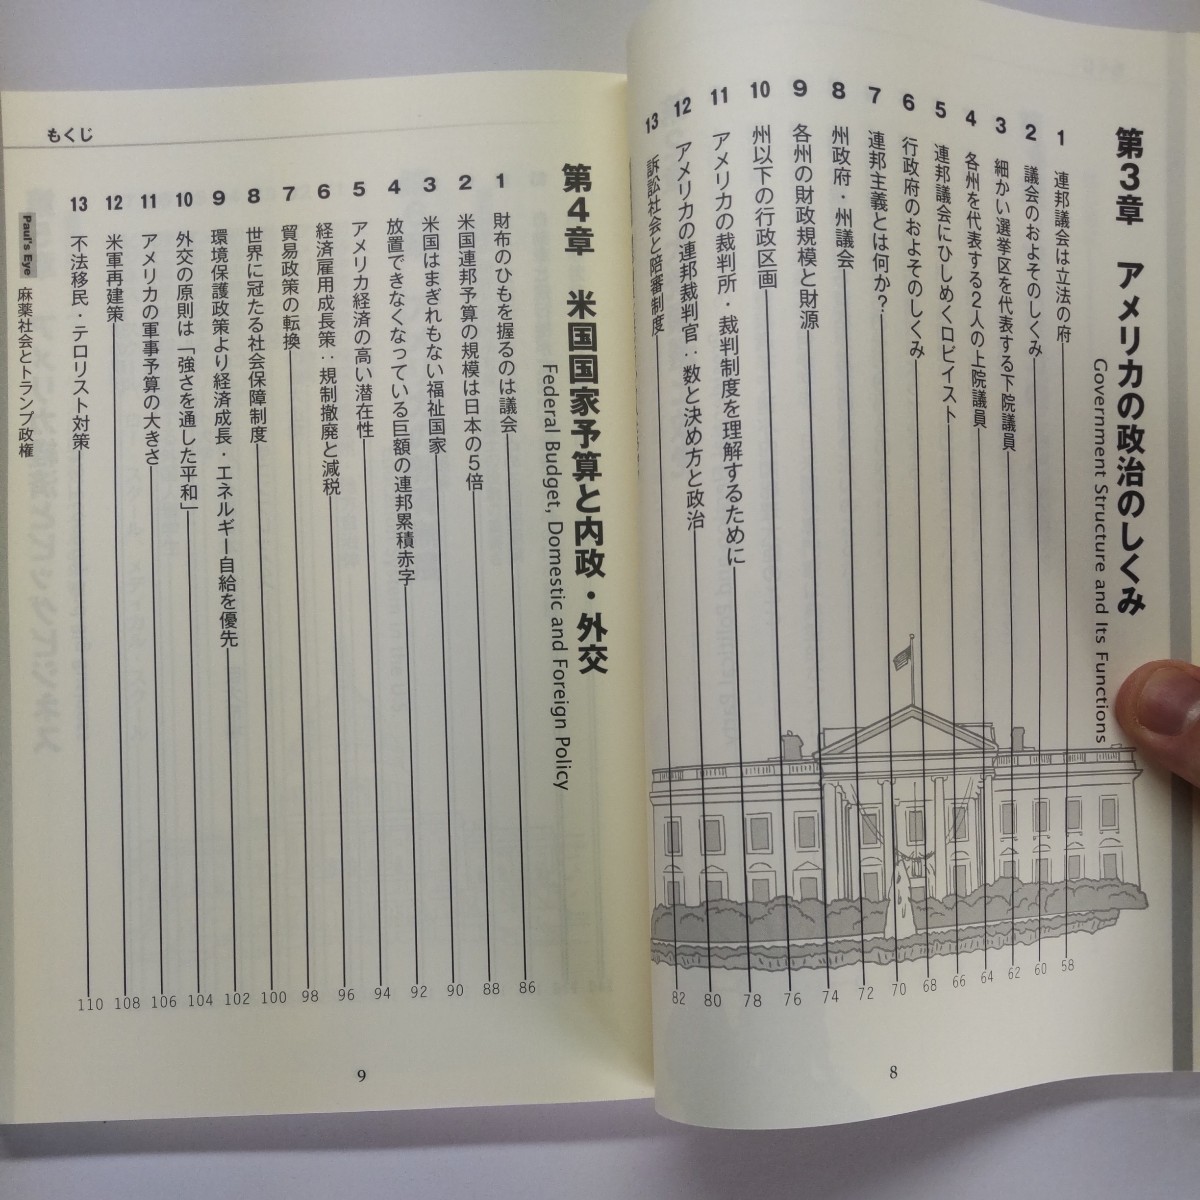 第3章 アメリカの政治のしくみ
Government Structure and Its Functions
1 連邦議会は立法の府 58
2 議会のおよそのしくみ 60
3 細かい選挙区を代表する下院議員 62
4 各州を代表する2人の上院議員 64
5 連邦議会にひしめくロビイスト 66
6 行政府のおよそのしくみ 68
7 連邦主義とは何か? 70
8 州政府・州議会 72
9 各州の財政規模と財源 74
10 州以下の行政区画 76
11 アメリカの裁判所・裁判制度を理解するために 78
12 アメリカの連邦裁判官：数と決め方と政治 80
13 訴訟社会と陪審制度 82
8
もくじ
第4章 米国国家予算と内政・外交
Federal Budget, Domestic and Foreign Policy
1 財布のひもを握るのは議会 86
2 米国連邦予算の規模は日本の5倍 88
3 米国はまぎれもない福祉国家 90
4 放置できなくなっている巨額の連邦累積赤字 92
5 アメリカ経済の高い潜在性 94
6 経済雇用成長策：規制撤廃と減税 96
7 貿易政策の転換 98
8 世界に冠たる社会保障制度 100
9 環境保護政策より経済成長・エネルギー自給を優先 102
10 外交の原則は「強さを通した平和」 104
11 アメリカの軍事予算の大きさ 106
12 米軍再建策 108
13 不法移民・テロリスト対策 110
Paul's Eye 麻薬社会とトランプ政権
9